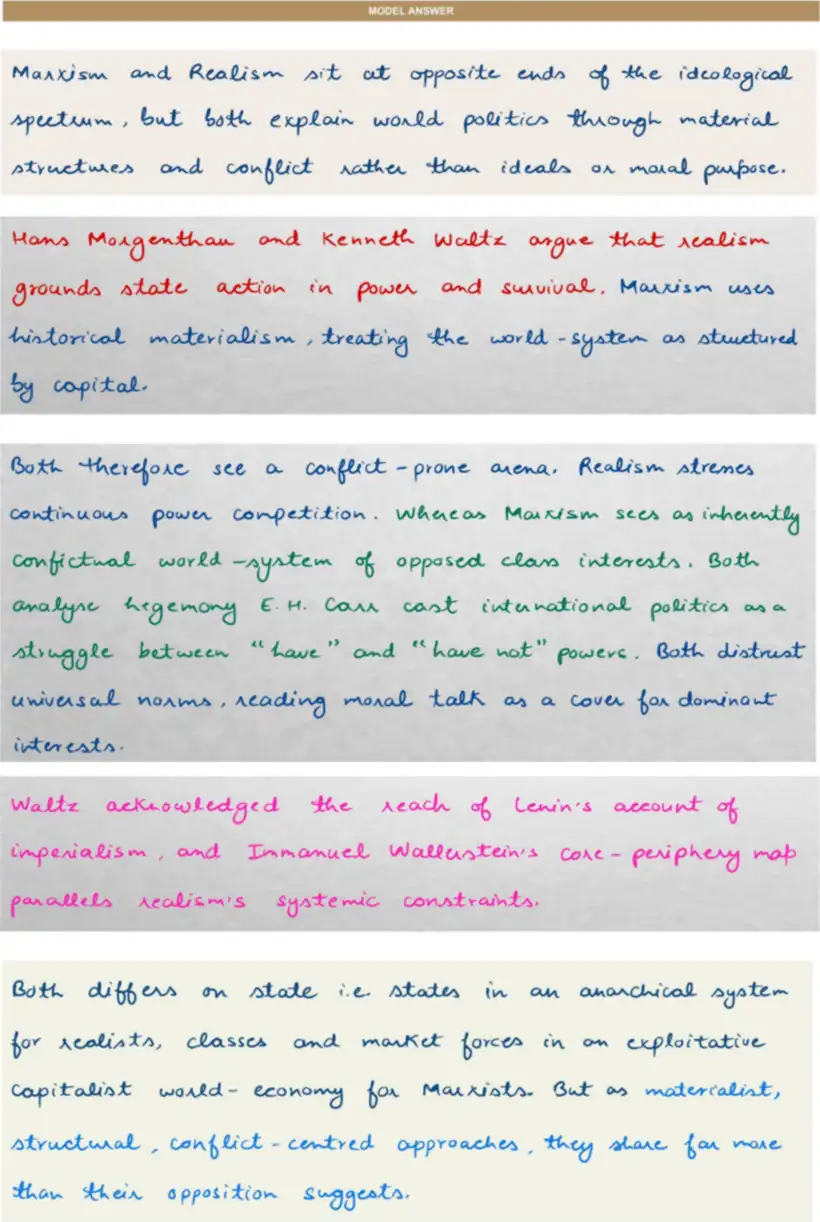 MODEL ANSWER
Marxism and Realism sit at opposite ends of the ideological
spectrum, but both explain world politics through material
structures and conflict rather than ideals or moral purpose.
Hans Morgenthau and Kenneth Waltz argue that realism
grounds state action in power and survival. Marxism uses
historical materialism, treating the world-system as structured
by capital.
Both therefore see a conflict-prone arena. Realism stresses
continuous power competition. Whereas Marxism sees as inherently
confictual world-system of opposed class interests. Both
analyse hegemony E.H. Carr cast international politics as a
struggle between "have" and "have not" powers. Both distrust
universal norms, reading moral talk as a cover for dominant
interests.
Waltz acknowledged the reach of Lenin's account of
imperialism, and Immanuel Wallerstein's core-periphery map
parallels realism's systemic constraints.
Both differs on state i.e. states in an anarchical system
for realists, classes and market forces in an exploitative
capitalist world-economy for Marxists. But as materialist,
structural, conflict-centred approaches, they share far more
than their opposition suggests.